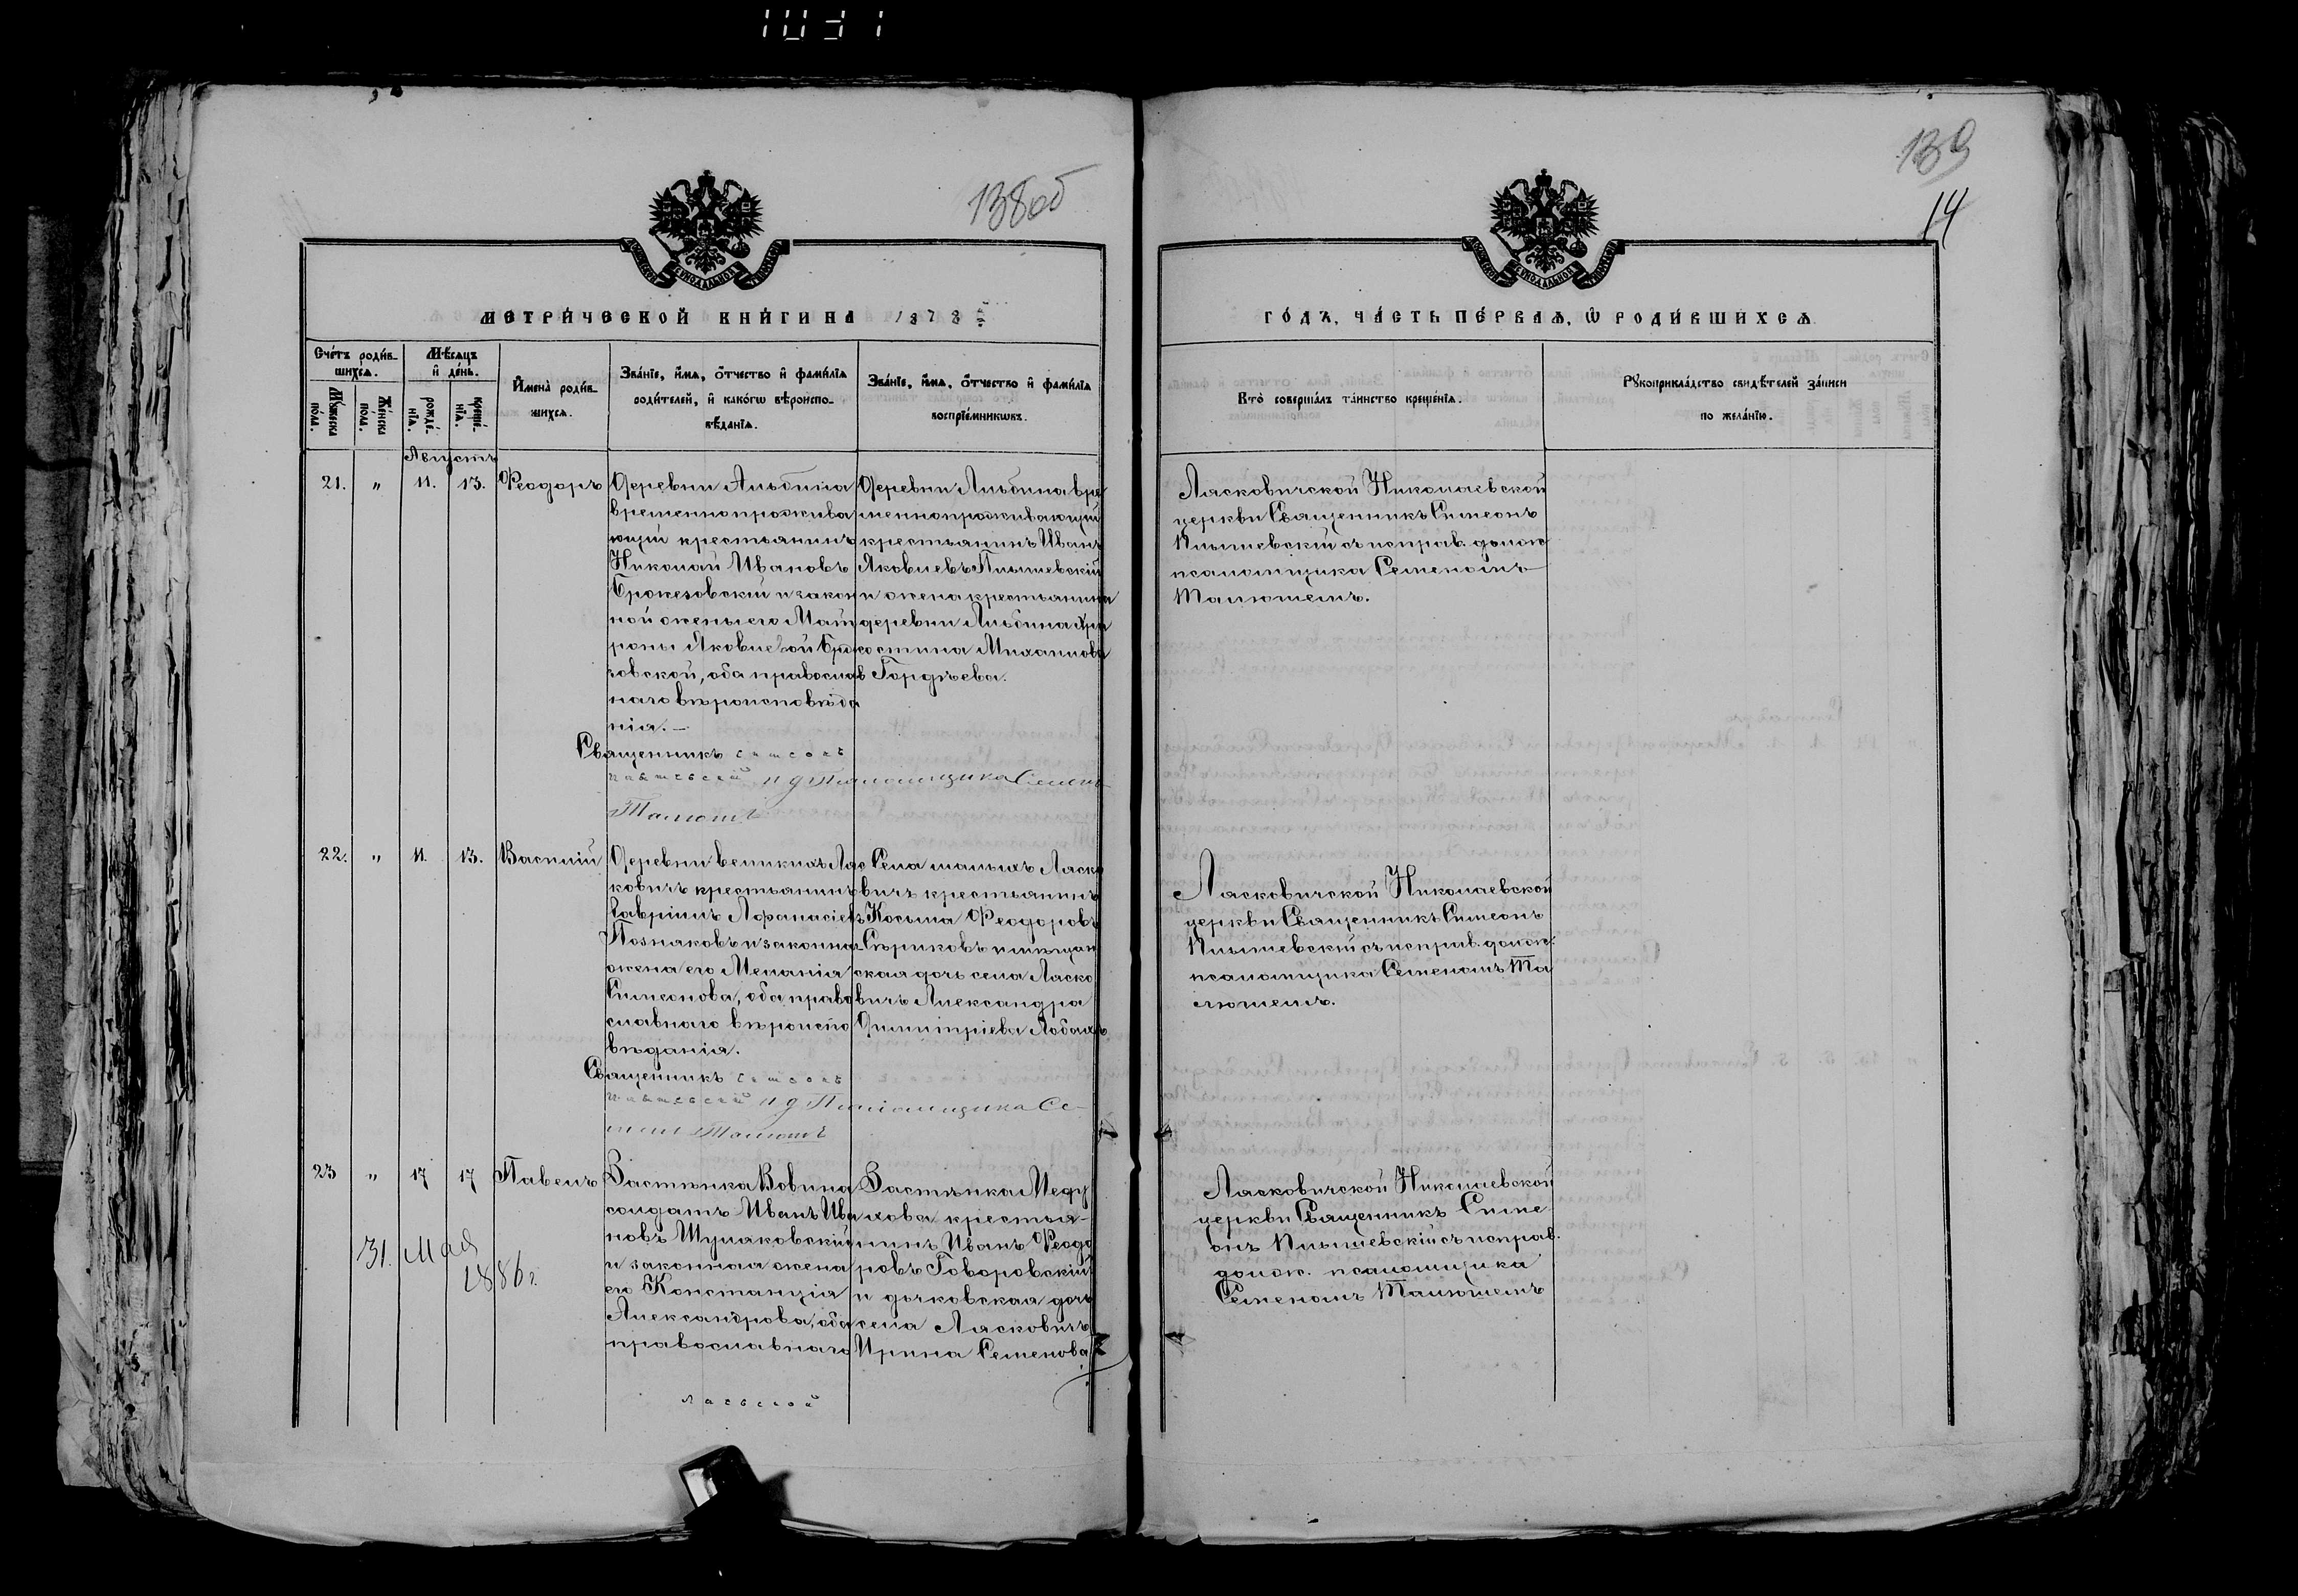 1031
138 об
139
14
МЕТРИ́ЧЕСКОЙ КНИ́ГИ НА 1878 й
ГО́ДЪ, ЧА́СТЬ ПЕ́РВАѦ, Ѽ РОДИ́ВШИХСѦ
Сче́тъ роди́в-
шихсѧ.
Му́жеска пола.
Же́нска пола.
Мѣ́сѧцъ
и҆ де́нь.
рожде́-
нїѧ.
креще́-
нїѧ.
И҆мена̀ роди́в-
шихсѧ.
Зва́нїе, и҆́мѧ, ѻ҆́тчество и҆ фами́лїѧ
роди́телей, и҆ како́гѡ вѣроиспо-
вѣ́данїѧ.
Зва́нїе, и҆́мѧ, ѻ҆́тчество и҆ фами́лїѧ
воспрїе́мникѡвъ.
Кто̀ соверша́лъ та́инство креще́нїѧ.
Рꙋкоприкла́дство свидѣ́телей за́писи
по жела́нїю.
Августъ
21. " 11. 13. Ѳеодоръ
Деревни Альбина
временнопрожива
ющій крестьянинъ
Николай Ивановъ
и закон
ной жены его Мат
роны Яковлевой
зовской, оба православ
наго вѣроисповѣда
нія.—
Священникъ Симеонъ
и д Псаломщика Семенъ
Талюшъ
Деревни Альбина вре
меннопроживающій
крестьянинъ Иванъ
Яковлевъ Пышевскій
и жена крестьянина
деревни Альбина
Михаилова
Гордѣева.
Лясковичской Николаевской
церкви Священникъ Симеонъ
съ исправ. долж
псаломщика Семеномъ
Талюшемъ.
22. " 11. 13. Василій
Деревни Великихъ Ляс
ковичъ крестьянинъ
Гавріилъ Афанасіевъ
Позняковъ и законная
жена его Меланія
Симеонова, оба право
славнаго вѣроиспо
вѣданія.
Священникъ Симеонъ
и д Псаломщика Се-
менъ Талюшъ
Села малыхъ Ляско
вичъ крестьянинъ
Косьма Ѳеодоровъ
Сѣриковъ и мѣщан
ская дочь села Ляско
вичъ Александра
Димитріева
Лясковичской Николаевской
церкви Священникъ Симеонъ
съ исправ. долж.
псаломщика Семеномъ Та
люшемъ.
23 " 17 17 Павелъ
Застѣнка Вовина
солдатъ Иванъ Ива
новъ Шулаковскій
и законная жена
его Констанція
Александрова, оба
православнаго
Застѣнка Меду
хова крестья-
нинъ Иванъ Ѳеодо
ровъ Говоровскій
и дьячковская дочь
села Лясковичъ
Ирина Семенова
Лясковичской Николаевской
церкви Священникъ Симе
онъ съ исправ.
долж. псаломщика
Семеномъ Талюшемъ
31. Мая
1886 г.